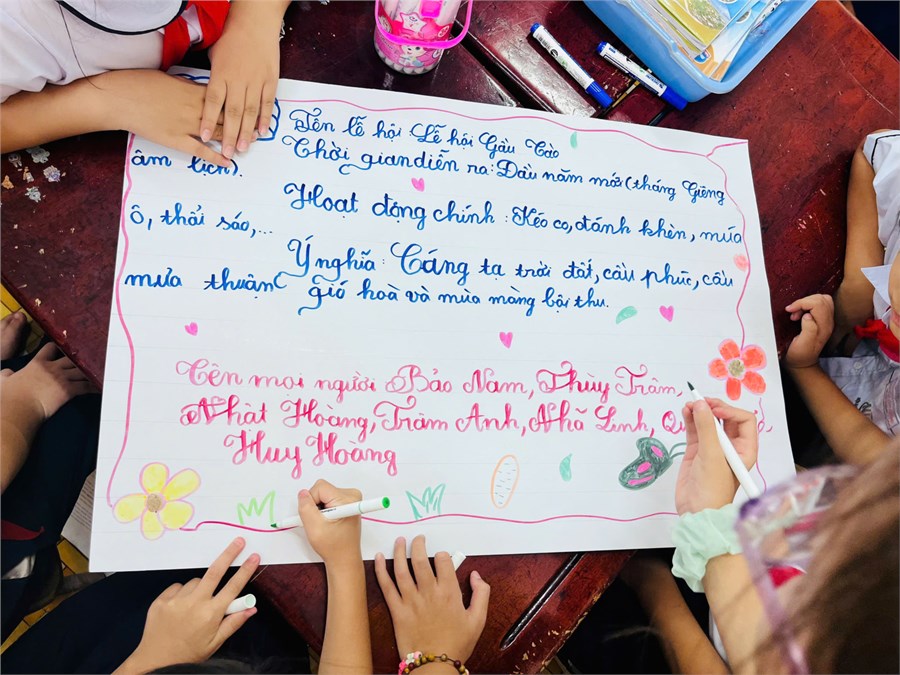 Tên lễ hội: Lễ hội Gầu Tào
Thời gian diễn ra: Đầu năm mới (tháng Giêng
âm lịch).
Hoạt động chính: Kéo co, đánh khèn, múa
ô, thổi sáo,...
Ý nghĩa: Cáng tạ trời đất, cầu phúc, cầu
mưa thuận gió hoà và mùa màng bội thu.
Tên mọi người Bảo Nam, Thùy Trâm,
Nhật Hoàng, Trâm Anh, Nhã Linh,
Huy Hoàng